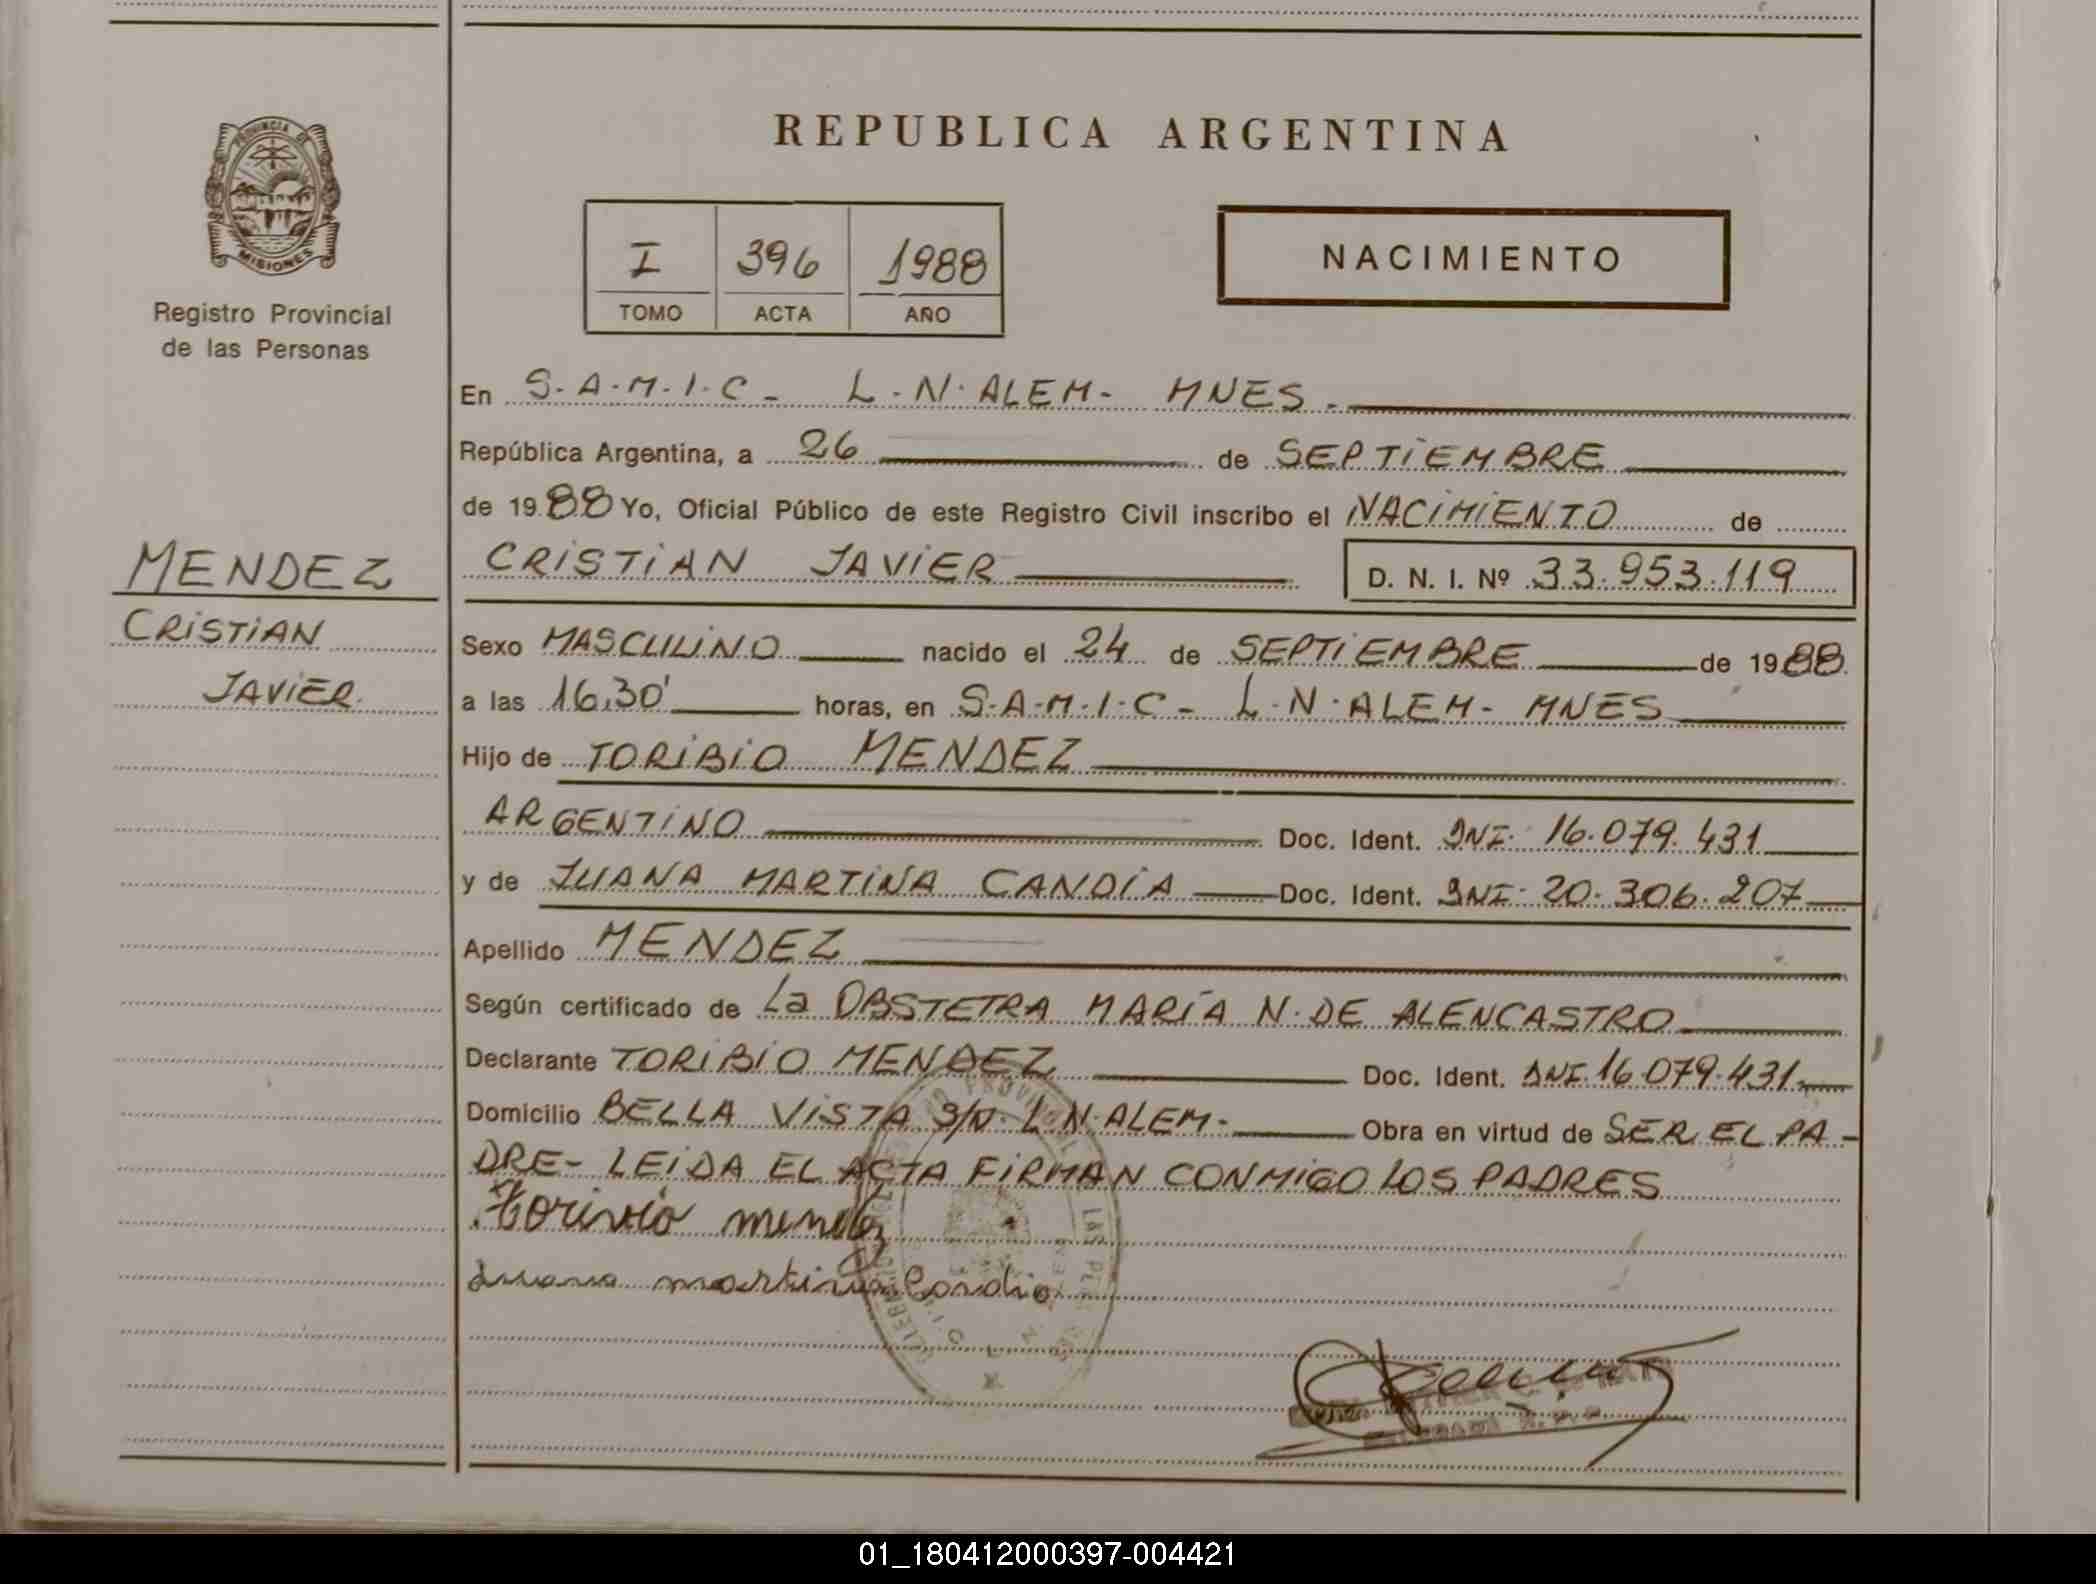 REPUBLICA ARGENTINA
PROVINCIA DE
MISIONES
Registro Provincial
de las Personas
I 396 1988
TOMO ACTA AÑO
NACIMIENTO
En S.A.M.I.C - L.N.ALEM- MNES.
República Argentina, a 26 de SEPTIEMBRE
de 1988 Yo, Oficial Público de este Registro Civil inscribo el NACIMIENTO de
CRISTIAN JAVIER D. N. I. Nº 33.953.119
MENDEZ
CRISTIAN
JAVIER.
Sexo MASCULINO nacido el 24 de SEPTIEMBRE de 1988.
a las 16,30' horas, en S.A.M.I.C - L.N.ALEM- MNES
Hijo de TORIBIO MENDEZ
ARGENTINO Doc. Ident. DNI. 16.079.431
y de JUANA MARTINA CANDIA Doc. Ident. DNI. 20.306.207
Apellido MENDEZ
Según certificado de La OBSTETRA MARÍA N. DE ALENCASTRO
Declarante TORIBIO MENDEZ Doc. Ident. DNI.16.079.431.
Domicilio BELLA VISTA S/N. L.N.ALEM- Obra en virtud de SER EL PA-
DRE- LEIDA EL ACTA FIRMAN CONMIGO LOS PADRES
torivio mendez
Juana martina Candia
01_180412000397-004421